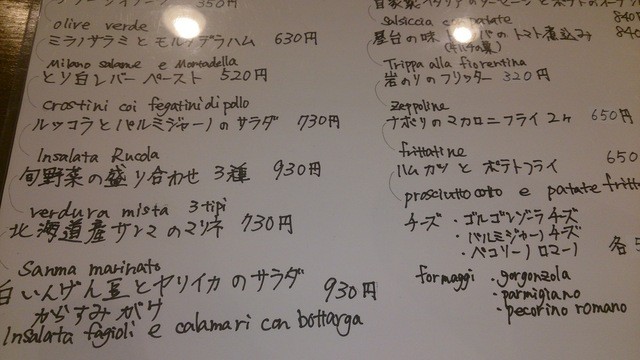 350円
olive verde
ミラノサラミ と モルタデラハム 630円
Milano salame e Mortadella
とり白レバーペースト 520円
Crostini coi fegatini di pollo
ルッコラとパルミジャーノのサラダ 730円
Insalata Rucola
旬野菜の盛り合わせ 3種 930円
verdura mista 3 tipi
北海道産サンマのマリネ 730円
Sanma marinato
白いんげん豆とヤリイカのサラダ 930円
からすみがけ
Insalata fagioli e calamari con bottarga
自家製イタリアのソーセージとポテトの
Salsiccia con patate 840
屋台の味 トリッパのトマト煮込み 840
Trippa alla fiorentina
岩のりのフリッター 320円
Zeppoline
ナポリのマカロニフライ 2ケ 650円
frittatine
ハムカツ と ポテトフライ 650
prosciutto cotto e patate fritte
チーズ ・ゴルゴンゾーラチーズ
・パルミジャーノチーズ
・ペコリーノ ロマーノ 各
formaggi ・gorgonzola
・parmigiano
・pecorino romano